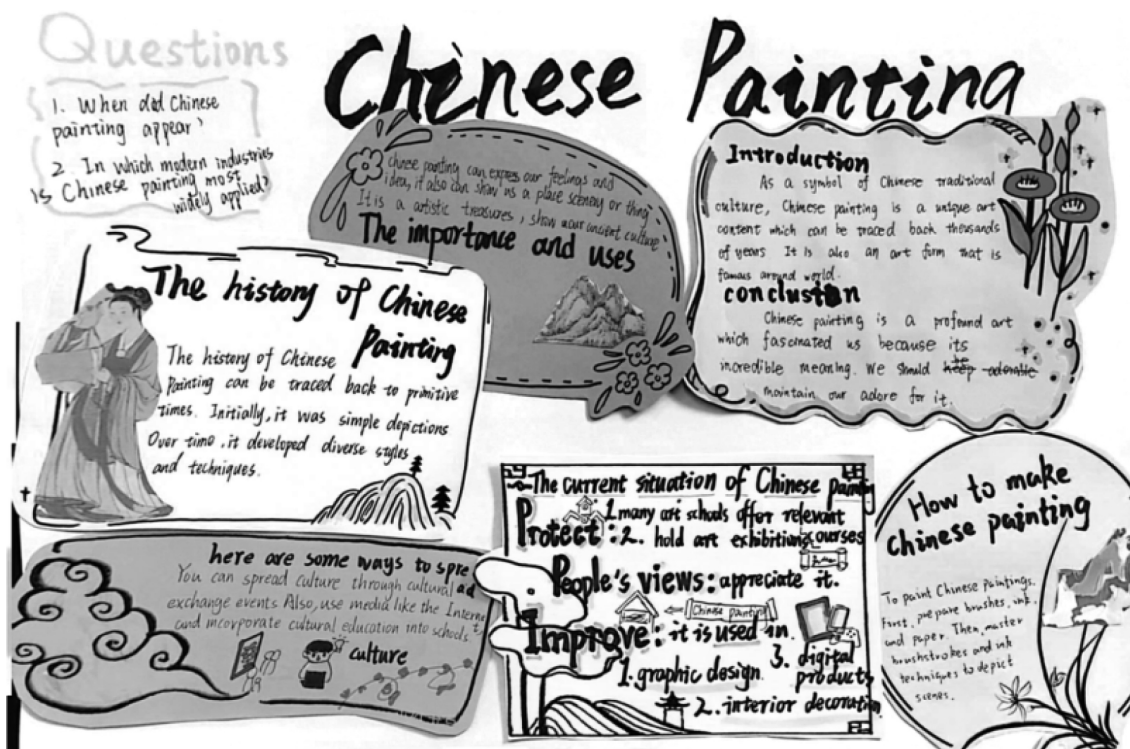 Chinese Painting
Questions
1. When did Chinese
painting appear?
2. In which modern industries
is Chinese painting most
widely applied?
Chinese painting can express our feelings and
idea, it also can show us a place scenery or thing
It is a artistic treasures, show our ancient culture
The importance and uses
Introduction
As a symbol of Chinese traditional
culture, Chinese painting is a unique art
content which can be traced back thousands
of years It is also an art form that is
famous around world.
conclusion
Chinese painting is a profound art
which fascinated us because its
incredible meaning. We should be
maintain our adore for it.
The history of Chinese
Painting
The history of Chinese
Painting can be traced back to primitive
times. Initially, it was simple depictions
Over time, it developed diverse styles
and techniques.
here are some ways to spread
You can spread culture through cultural
exchange events Also, use media like the Internet,
and incorporate cultural education into schools
culture
The current situation of Chinese painting
Protect: 1. many art schools offer relevant
courses
2. hold art exhibitions
People's views: appreciate it.
Chinese painting
Improve: it is used in.
1. graphic design.
2. interior decoration
3. digital
products
How to make
Chinese painting
To paint Chinese Paintings.
First, prepare brushes, ink.
and paper. Then, master
brushstrokes and ink
techniques to depict
scenes.